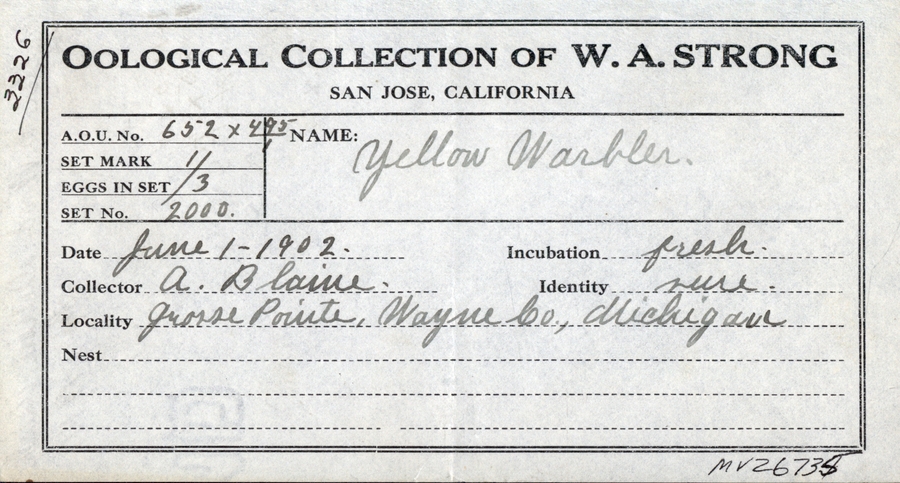 3226
OOLOGICAL COLLECTION OF W. A. STRONG
SAN JOSE, CALIFORNIA
A.O.U. No. 652 x 495
NAME: Yellow Warbler.
SET MARK 1/
EGGS IN SET /3
SET No. 2000.
Date June 1-1902.
Incubation fresh.
Collector A. Blaine.
Identity sure.
Locality Grosse Pointe, Wayne Co., Michigan
Nest
MVZ6735